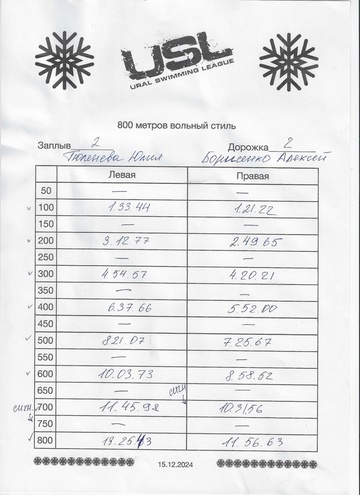 USL
URAL SWIMMING LEAGUE
800 метров вольный стиль
Заплыв 2 Дорожка 2
Тюленева Юлия Борисенко Алексей
Левая Правая
50 — —
100 1.33.44 1.21.22
150 — —
200 3.12.77 2.49.65
250 — —
300 4.54.57 4.20.21
350 — —
400 6.37.66 5.52.00
450 — —
500 8.21.07 7.25.67
550 — —
600 10.03.73 8.58.52
650 — —
700 11.45.98 10.31.56
750 — —
800 13.25.43 11.56.63
15.12.2024